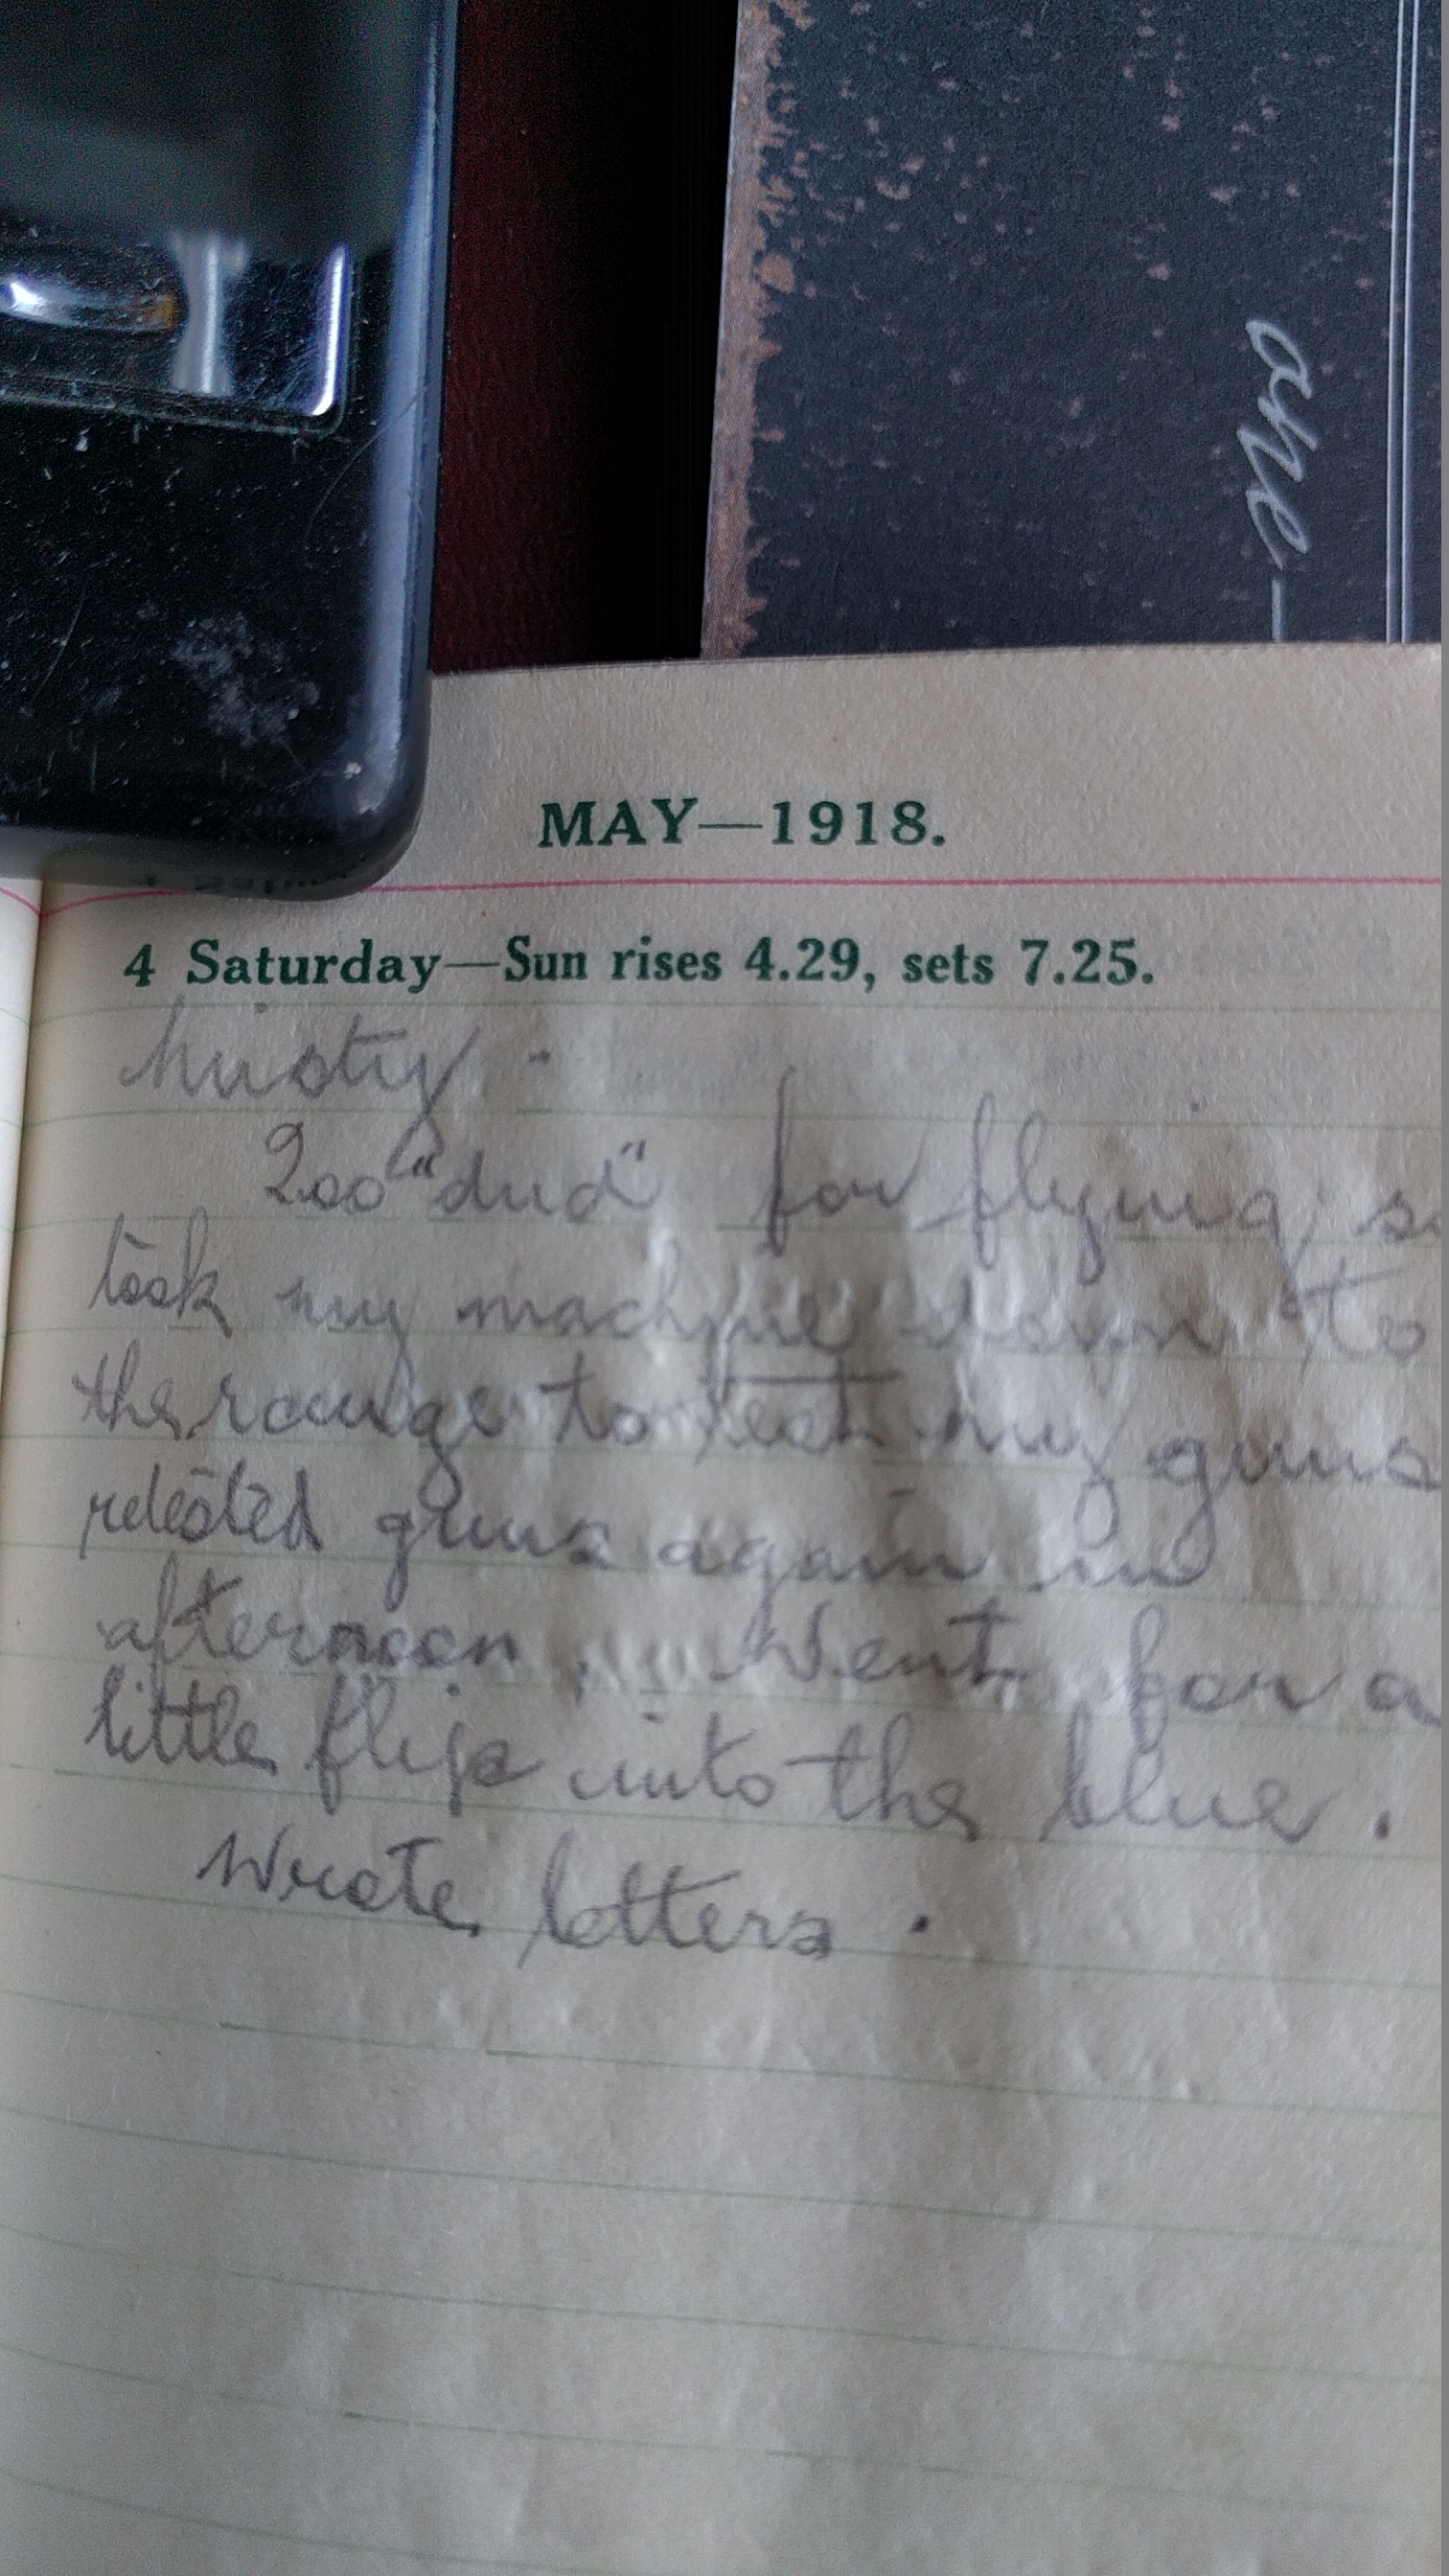 one
MAY—1918.
4 Saturday—Sun rises 4.29, sets 7.25.
Misty.
Too "dud" for flying so
took my machine down to
the range to test my guns
retested guns again in
afternoon. Went for a
little flip into the blue.
Wrote letters.